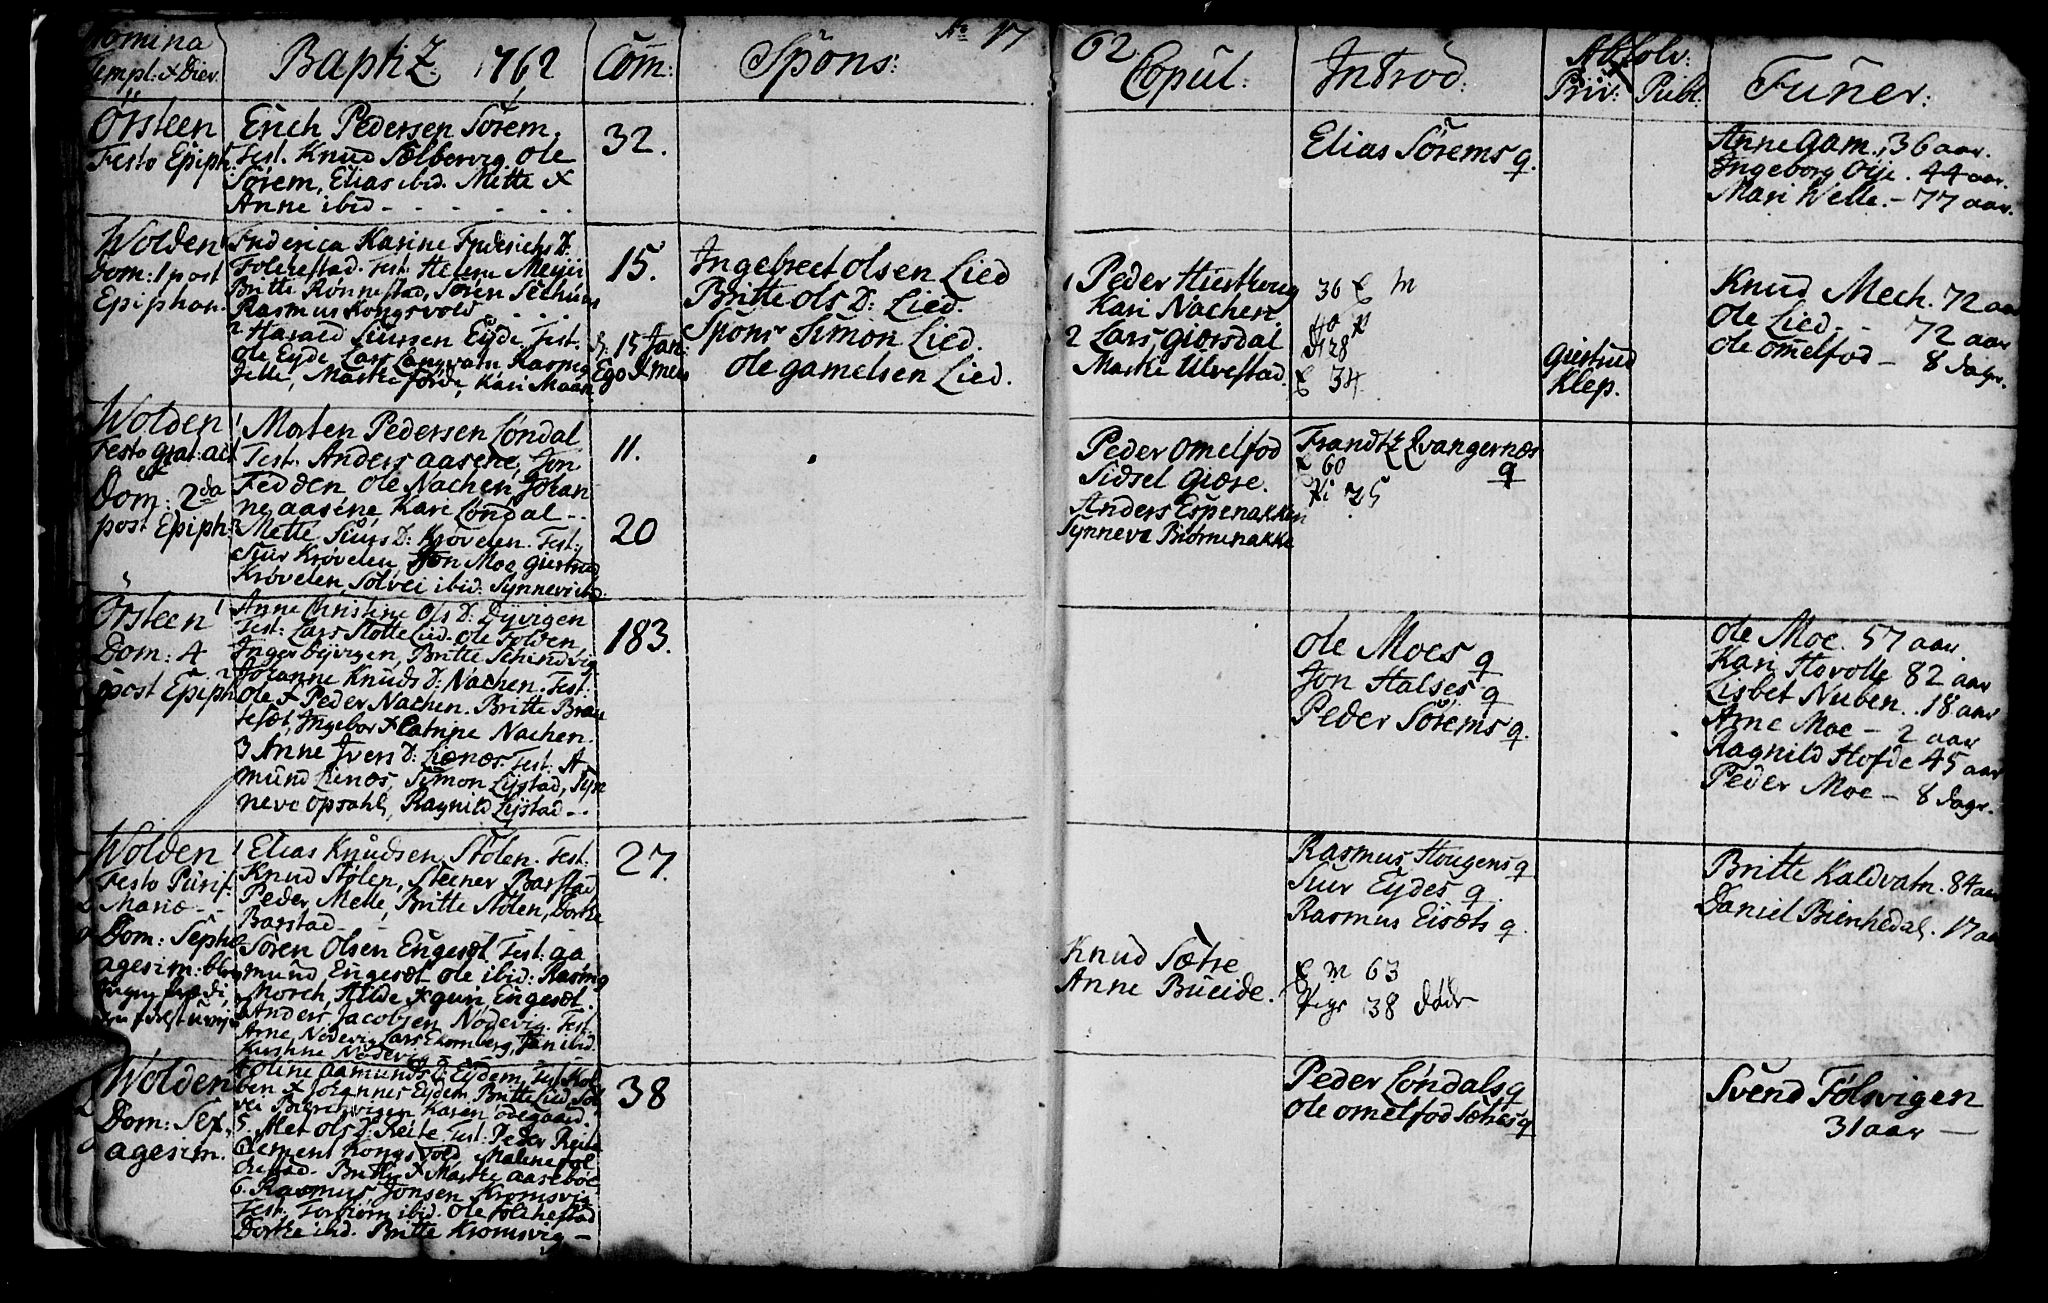 No 17 62
Nomina
Templ: & Dier.
BaptiZ. 1762
Com:
Spons:
Copul:
Introd:
Absolv:
Priv: Publ:
Funer:
Ørsteen
Festo Epiph:
Erich Pedersen Sørem.
Test. Knud Sælbervig. Ole
Sørem, Elias ibid. Mette &
Anne ibid - - - - -
32.
Elias Sørems q.
Anne Aam. 36 aar.
Ingeborg Øye. 44 aar.
Mari Welle. - 77 aar.
Wolden
Dom: 1 post
Epiphan.
Friderica Karine Friderichs D:
Folchestad. Test. Helene Meyer
Britte Rønnestad, Søren
Rasmus Kongsvold
2 Harald Siursen Eyde. Test.
Ole Eyde, Lars Langvatn, Rasmus
Jelle, Marthe Førde, Kari Moan
15.
15 Jan:
Ego & mei
Ingebrect Olsen Lied
Britte Ols D: Lied.
Spons. Simon Lied.
Ole Gamelsen Lied.
1 Peder Hiestberg
Kari Nachen
2 Lars Giørsdal
Marte Ulvestad.
36
28
34
Giertrud
Klep.
Knud Mech. 72 aar
Ole Lied - - 72 aar
Ole Omelfod - 8 dage.
Wolden
Festo grat: act
et
Dom: 2da
post Epiph:
1 Morten Pedersen Løndal
Test. Anders Aasene, Jon
Fedden Ole Nachen, Johan
ne Aasene Kari Løndal - -
2 Mette Siurs D: Krøvelen. Test.
Siur Krøvelen, Jon Moe, Giertrud
Krøvelen, Solvei ibid. Synnev ibid.
11.
20
Peder Omelfod
Sidsel Giære.
Anders Espenakken
Synneva Biørnenakke
Frandtz Evangernæs
q
60
25
Ørsteen
Dom: 4
post Epiph
1 Anne Christine Ols D: Dyvigen
Test: Lars Slotte Lied. Ole Folden,
Inger Dyvigen, Britte
2 Johanne Knuds D: Nachen. Test:
Ole & Peder Nachen. Britte
Ingebor & Catrine Nachen.
3 Anne Ivers D: Lienæs. Test: A-
mund Lienæs, Simon Lystad, Syn
neve Opsahl, Ragnild Lystad - -
183.
Ole Moes q
Jon Halses q
Peder Sørems q.
Ole Moe. 57 aar.
Kari Hovolle 82 aar
Lisbet Nuben. 18 aar
Arne Moe - 2 aar
Ragnild Hofde 45 aar
Peder Moe - 8 dage.
Wolden
Festo Purif.
Mariæ - -
Dom: Septu
agesim:
1 Elias Knudsen Stølen. Test:
Knud Stølen, Steener Barstad
Peder Melle, Britte Stølen, Dorthe
Barstad - -
2 Søren Olsen Engesæt. Test: Aa
mund Engesæt Ole ibid: Rasmus
Morch, Hilde & gun Engesæt.
3 Anders Jacobsen Nødevig. Test.
Arne Nødevig, Lars, Jan ibid.
Kirstine Nødevig - -
27.
Knud Sætre
Anne Bueide.
Rasmus Hougens q
Siur Eydes q.
Rasmus Eisæts q.
63
38 døde
Britte Kaldvatn. 84 aar
Daniel Bienhedal. 17 aar
Wolden
Dom: Sex
agesim.
4 Oline Aamunds D: Eydem, Test. Kol
ben & Johannes Eydem. Britte Lied, Sol
vei Bierchevigen Karen Ødegaard.
5. Met Ols D: Reite. Test. Peder Reite
Clement Kongsvold, Malene Fol
chestad. Britte & Marthe Aasebøe
6. Rasmus Jonsen Kromsvig
Test. Torbiørn ibid. Ole Folchestad
Dorthe ibid. Britte Kromsvig -
38
Peder Løndals q
Ole Omelfod Sætres q
Svend Følsvigen
31 aar -